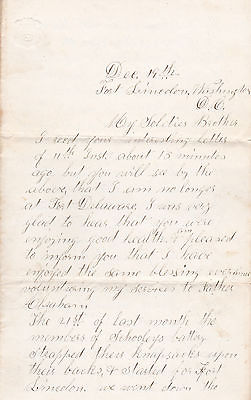 Dec. 14th
Fort Lincoln, Washington
D.C.
My Soldier Brother
I recd your interesting letter
of 11th Inst. about 15 minutes
ago but you will see by the
above, that I am no longer
at Fort Delaware. I am very
glad to hear that you were
enjoying good health. I am pleased
to inform you that I have
enjoyed the same blessing ever since
volunteering my services to Father
Abraham.
The 21st of last month the
members of Schooleys battery
Strapped their Knapsacks upon
their backs, & Started for Fort
Lincoln. we went down the